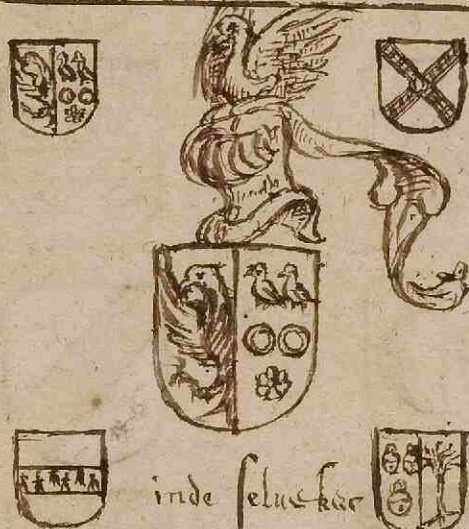 inde selue kac